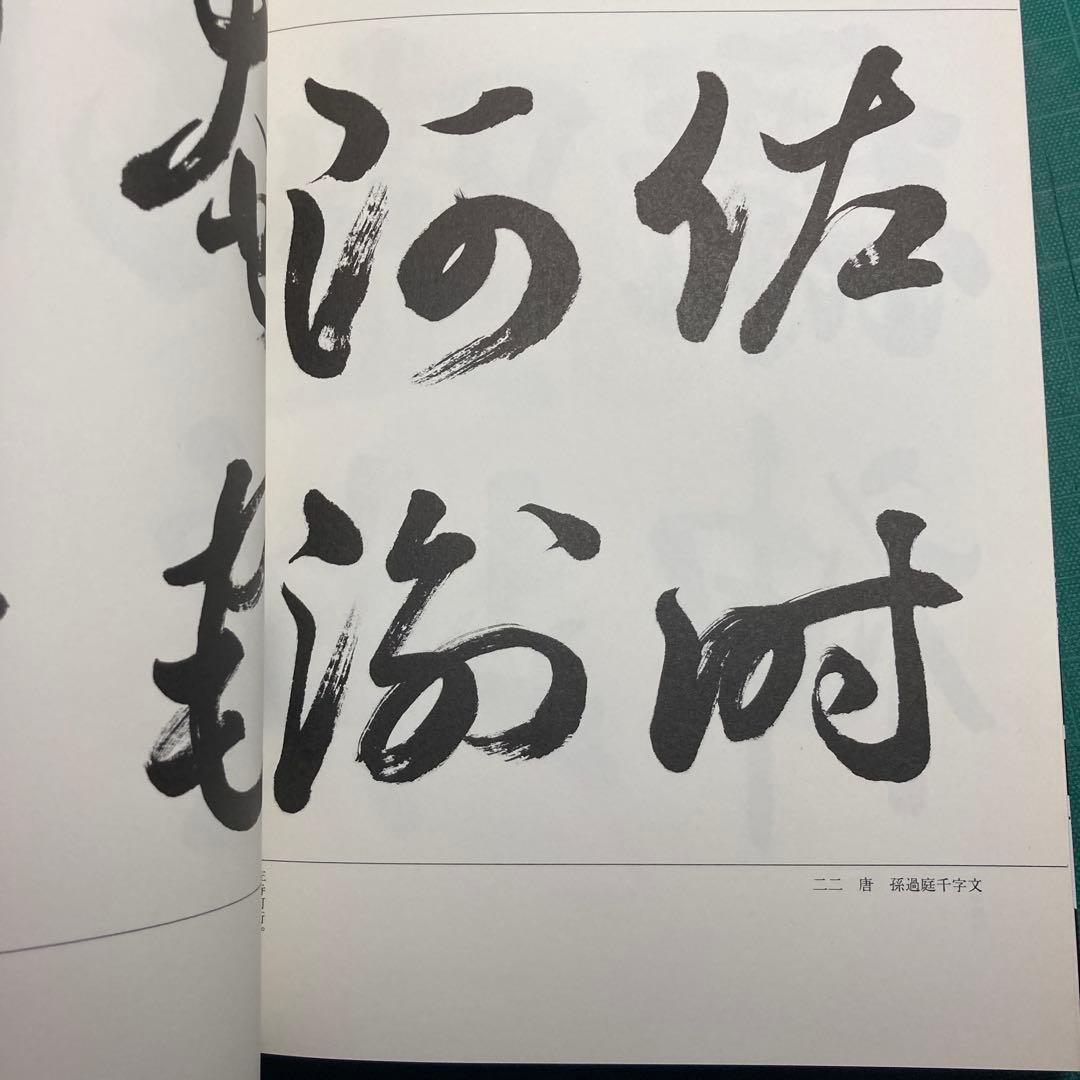 佐時
阿衡
二二 唐 孫過庭千字文